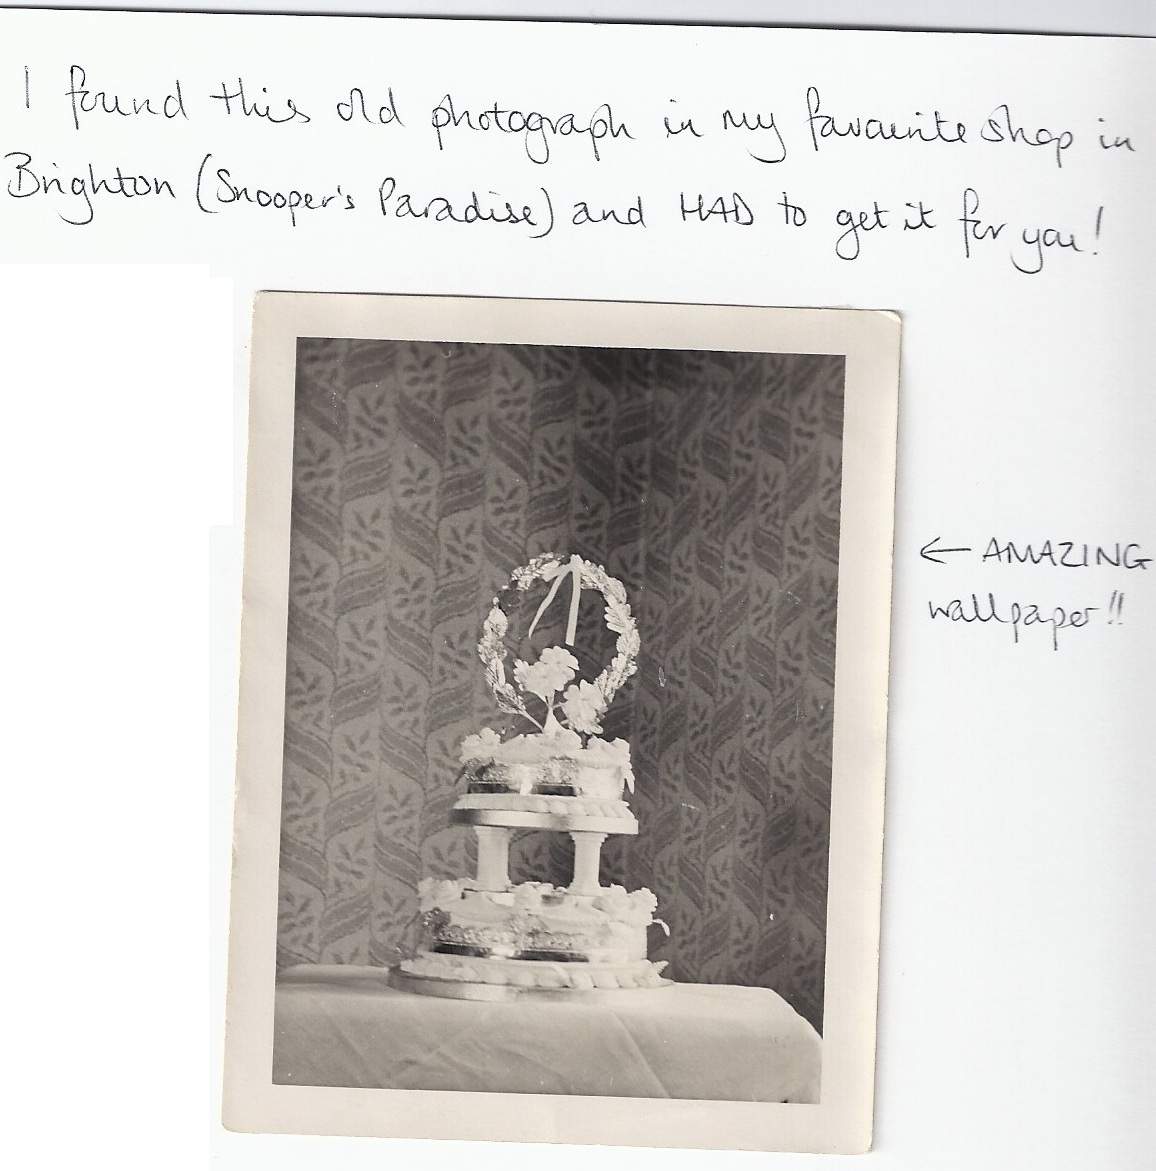 I found this old photograph in my favourite shop in
Brighton (Snooper's Paradise) and HAD to get it for you!
← AMAZING
wallpaper!!